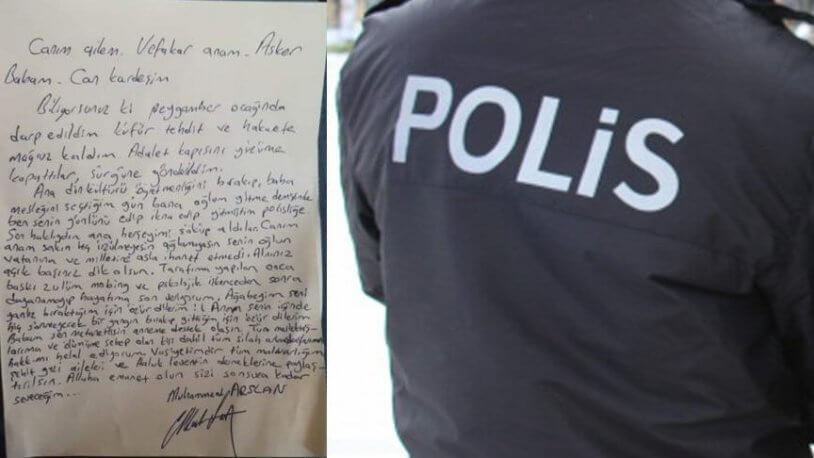 Canım ailem. Vefakar anam. Asker
Babam. Can kardeşim
Biliyorsunuz ki peygamber ocağında
darp edildim küfür tehdit ve hakarete
mağruz kaldım. Adalet kapısını yüzüme
kapattılar, sürgüne gönderildim.
Ana dinkültürü öğretmenliğini bırakıp, baba
mesleğini seçtiğim gün bana oğlum gitme demiştin
ben senin gönlünü edip ikna edip gitmiştim polisliğe.
Sen haklıydın ana herşeyimi söküp aldılar. Canım
anam sakın hiç üzülmeyesin ağlamayasın senin oğlun
vatanına ve milletine asla ihanet etmedi. Alnınız
açık başınız dik olsun. Tarafıma yapılan onca
baskı zulüm mobing ve psikolojik işkenceden sonra
dayanamayıp hayatıma son veriyorum. Ağabeyim seni
yanlız bıraktığım için özür dilerim. Annem senin içinde
hiç sönmeyecek bir yangın bırakıp gittiğim için özür dilerim
Babam sen metanetlisin anneme destek olasın. Tüm
ve ölümüme sebep olan kişi dahil tüm silah arkadaşlarıma
hakkımı helal ediyorum. Vasiyetimdir tüm malvarlığım
şehit gazi aileleri ve Haluk levent'in derneklerine paylaş-
tırılsın. Allaha emanet olun sizi sonsuza kadar
seveceğim...
Muhammed ARSLAN
POLİS